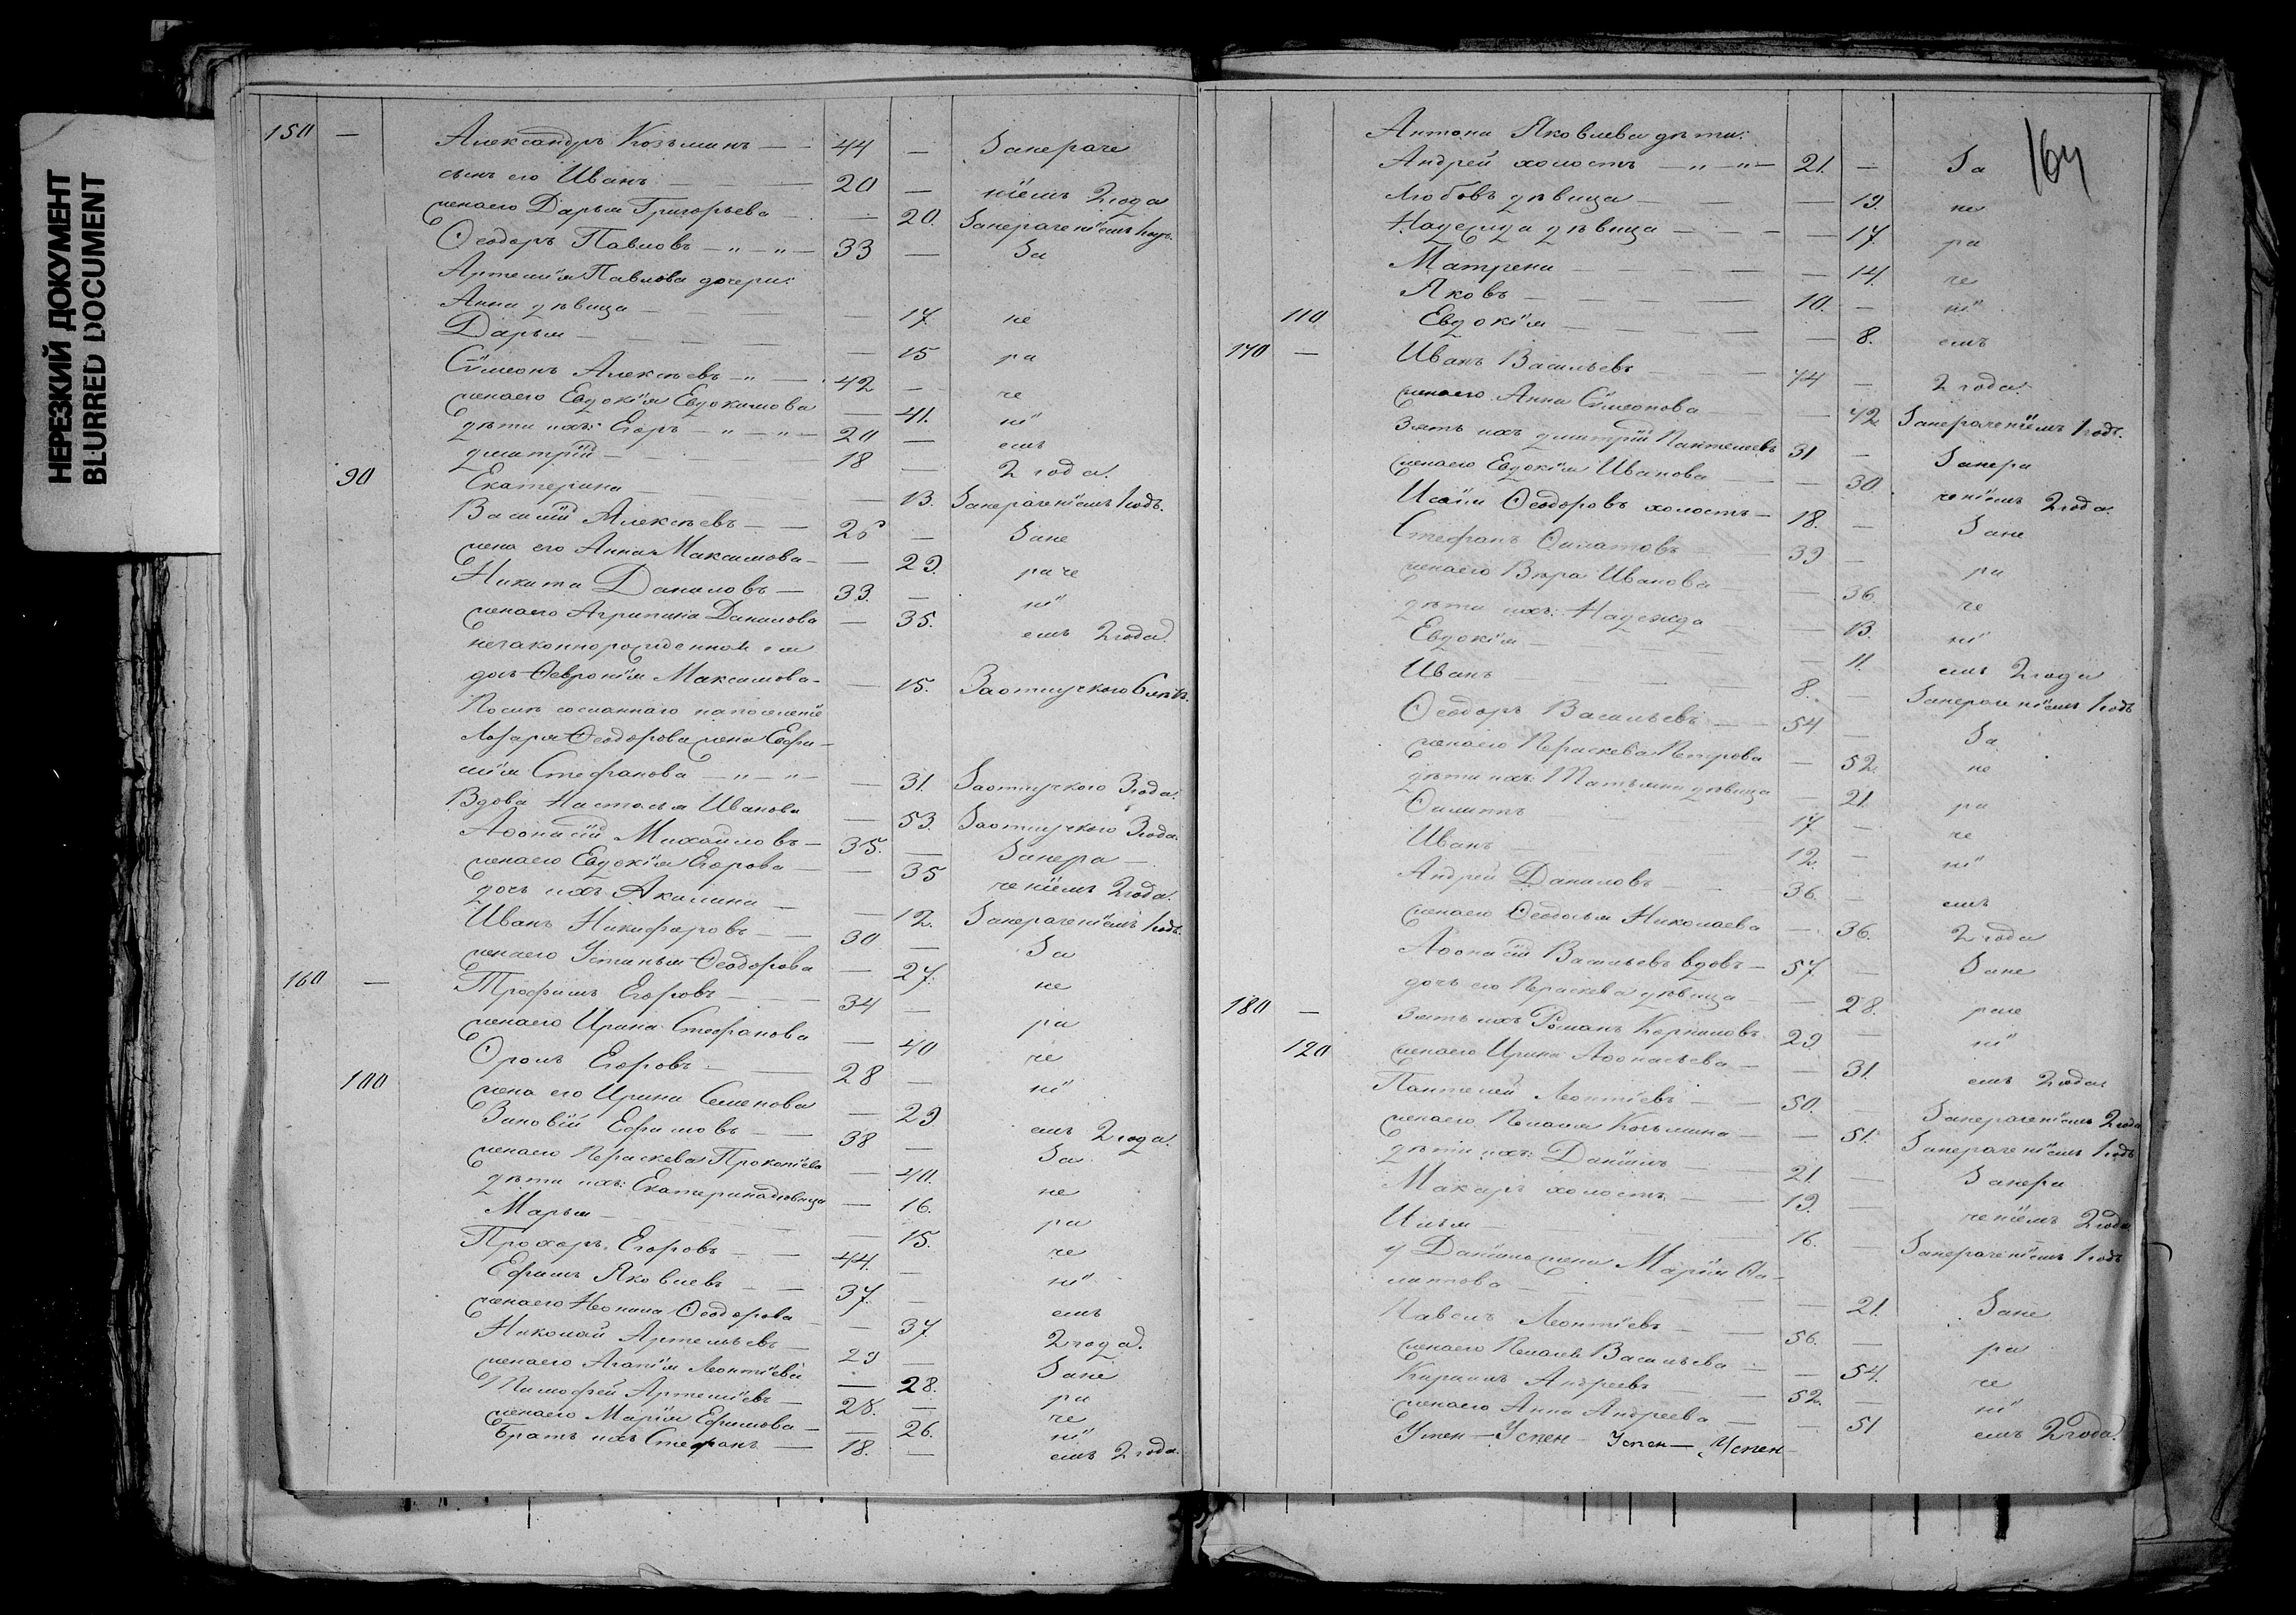 НЕРЕЗКИЙ ДОКУМЕНТ
BLURRED DOCUMENT
150 — Александръ Козьминъ — 44 — Занераче
сынъ его Иванъ — 20 — ніемъ 2 года
жена его Дарья Григорьева — 20. Занераченіемъ 1 годъ.
Ѳеодоръ Павловъ — „ — „ — 33 — За
Артемія Павлова дочери:
Анна дѣвица — 17. не
Дарья — 15 ра
Сѵмеонъ Алексѣевъ — „ — 42 — че
жена его Евдокія Евдокимова — 41. ні
дѣти ихъ: Егоръ — „ — „ — 20 — емъ
Дмитрій — 18 — 2 года.
90 Екатерина — 13. Занераченіемъ 1 годъ.
Василій Алексѣевъ — 26 — Зане
жена его Анна Максимова — 29. раче
Никита Даниловъ — 33. — ні
жена его Агрипина Данилова — 35. емъ 2 года.
незаконнорожденная ея
дочь Ѳевронія Максимова — 15. За отлучкою 6 лѣтъ.
Послѣ сосланнаго на поселеніе
Лазаря Ѳеодорова жена Евфи-
мія Стефанова — „ — „ — 31. За отлучкою 3 года.
Вдова Настасья Иванова — 53. За отлучкою 3 года.
Аѳонасій Михайловъ — 35. — Занера —
жена его Евдокія Егорова — 35 ченіемъ 2 года.
дочь ихъ Акилина — 12. Занераченіемъ 1 годъ.
Иванъ Никифоровъ — 30 — За
жена его Устинья Ѳеодорова — 27. не
160 — Трофимъ Егоровъ — 34 — ра
жена его Ирина Стефанова — 40 че
Ѳролъ Егоровъ — 28 — ні
100 жена его Ирина Семенова — 29 емъ 2 года.
Зиновій Ефимовъ — 38 — За
жена его Параскева Прокопіева — 40. не
дѣти ихъ: Екатерина дѣвица — 16. ра
Марья — 15. че
Прохоръ Егоровъ — 44. — ні
Ефимъ Яковлевъ — 37. — емъ
жена его Неонила Ѳеодорова — 37 2 года.
Николай Артемьевъ — 29 — Зане
жена его Агапія Леонтіева — 28. ра
Тимофей Артеміевъ — 28. — че
жена его Марія Ефимова — 26. ні
братъ ихъ Стефанъ — 18. — емъ 2 года.
164
Антона Яковлева дѣти:
Андрей холостъ — „ — „ — 21. — За
Любовь дѣвица — 19. не
Надежда дѣвица — 17. ра
Матрена — 14. че
Яковъ — 10. — ні
110 Евдокія — 8. емъ
170 — Иванъ Васильевъ — 44 — 2 года.
жена его Анна Сѵмеонова — 42 Занераченіемъ 1 годъ.
Зять ихъ Дмитрій Пантелеевъ 31 — Занера
жена его Евдокія Иванова — 30. ченіемъ 2 года.
Исаія Ѳеодоровъ холостъ — 18. — Зане
Стефанъ Филатовъ — 39 — ра
жена его Вѣра Иванова — 36. че
дѣти ихъ: Надежда — 13. ні
Евдокія — 11. емъ 2 года
Иванъ — 8. Занераченіемъ 1 годъ
Ѳеодоръ Васильевъ — 54 — За
жена его Параскева Петрова — 52. не
дѣти ихъ: Татьяна дѣвица — 21. ра
Филиппъ 17 — че
Иванъ — 12. — ні
Андрей Даниловъ — 36. — емъ
жена его Ѳеодосья Николаева — 36. 2 года
Аѳонасій Васильевъ вдовъ — 57 — Зане
дочь его Параскева дѣвица — 28. раче
180 — Зять ихъ Романъ Корниловъ 29. — ні
120 жена его Ирина Аѳонасьева — 31. емъ 2 года.
Пантелей Леонтіевъ — 50. — Занераченіемъ 2 года
жена его Пелагія Козьмина — 51. Занераченіемъ 1 годъ
дѣти ихъ: Даніилъ — 21. — Занера
Макаръ холостъ — 19. — ченіемъ 2 года
Илья — 16. — Занераченіемъ 1 годъ
у Даніила жена Марія Фи-
липпова — 21. Зане
Павелъ Леонтіевъ — 56. — ра
жена его Пелагія Васильева — 54. че
Кириллъ Андреевъ — 52. — ні
жена его Анна Андреева — 51 емъ 2 года.
Успен — Успен — Успен — Успен —